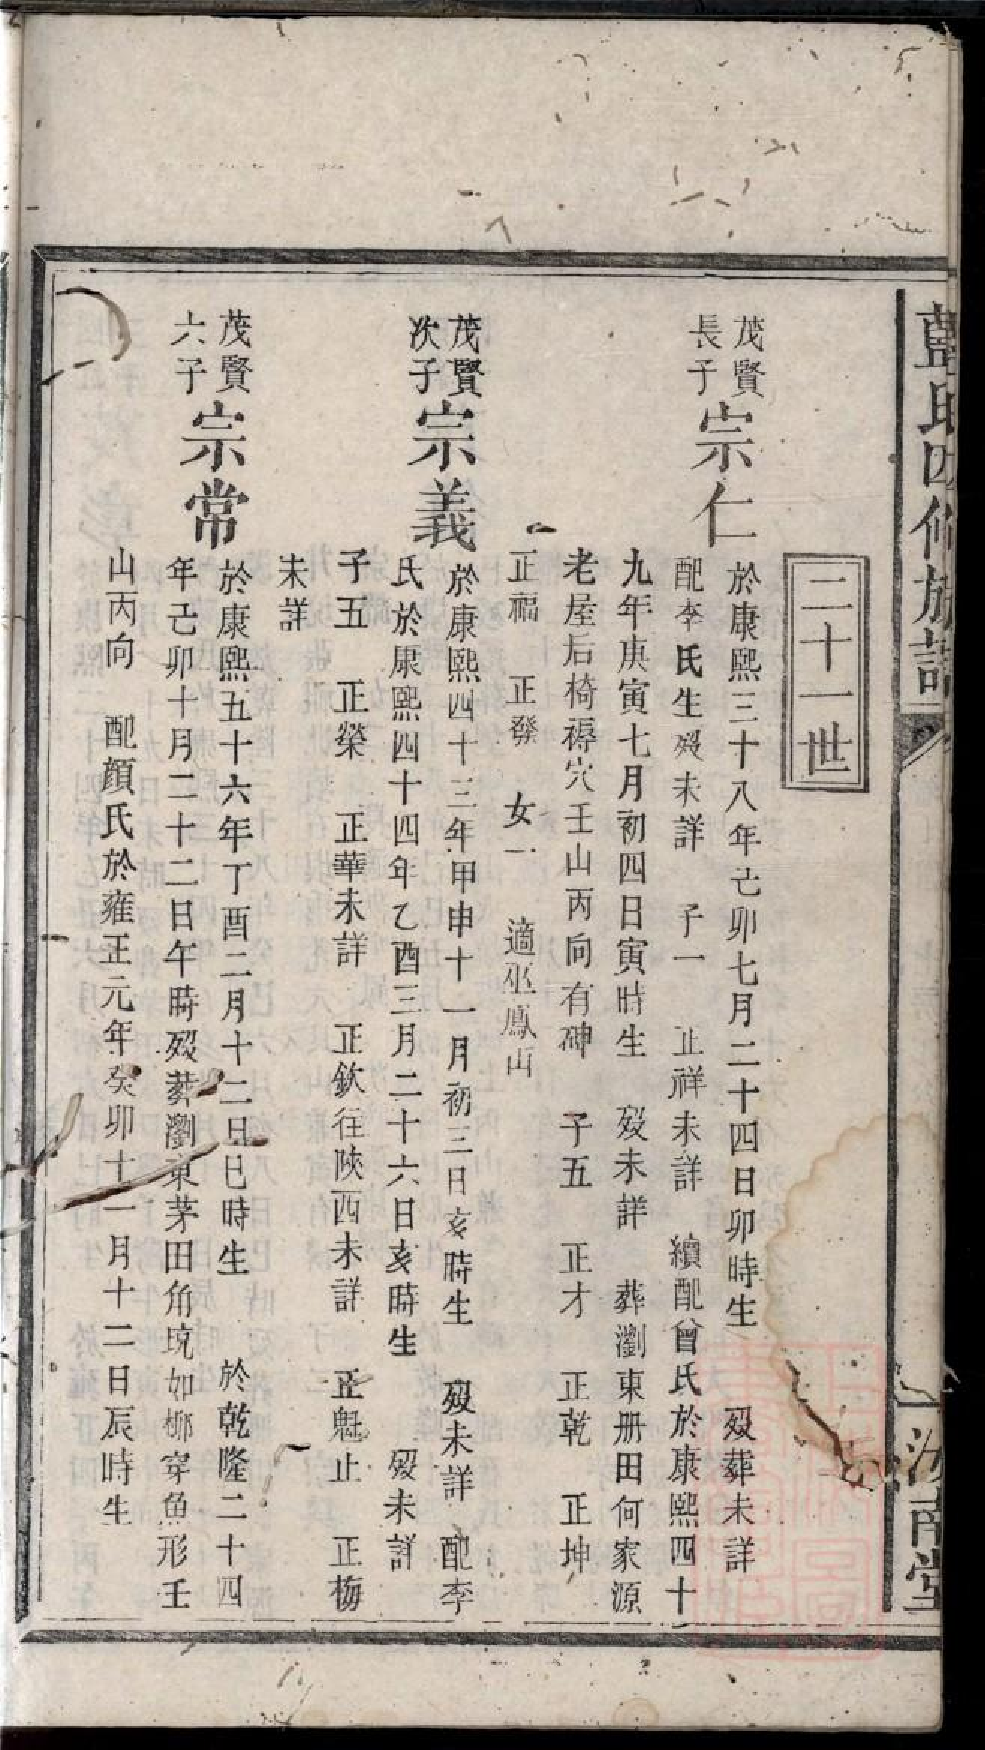 藍氏四修族譜
汝南堂
二十一世
茂賢
長子
宗仁
於康熙三十八年己卯七月二十四日卯時生 歿葬未詳
配李氏生歿未詳 子一 正祥未詳 續配曾氏於康熙四十
九年庚寅七月初四日寅時生 歿未詳 葬瀏東册田何家源
老屋后椅褥穴壬山丙向有碑 子五 正才 正乾 正坤
正福 正發 女一 適巫鳳山
茂賢
次子
宗義
於康熙四十三年甲申十一月初三日亥時生 歿未詳 配李
氏於康熙四十四年乙酉三月二十六日亥時生 歿未詳
子五 正榮 正華未詳 正欽往陝西未詳 正魁止 正梅
未詳
茂賢
六子
宗常
於康熙五十六年丁酉二月十二日巳時生 於乾隆二十四
年己卯十月二十二日午時歿葬瀏東茅田角坑如柳穿魚形壬
山丙向 配顏氏於雍正元年癸卯十一月十二日辰時生